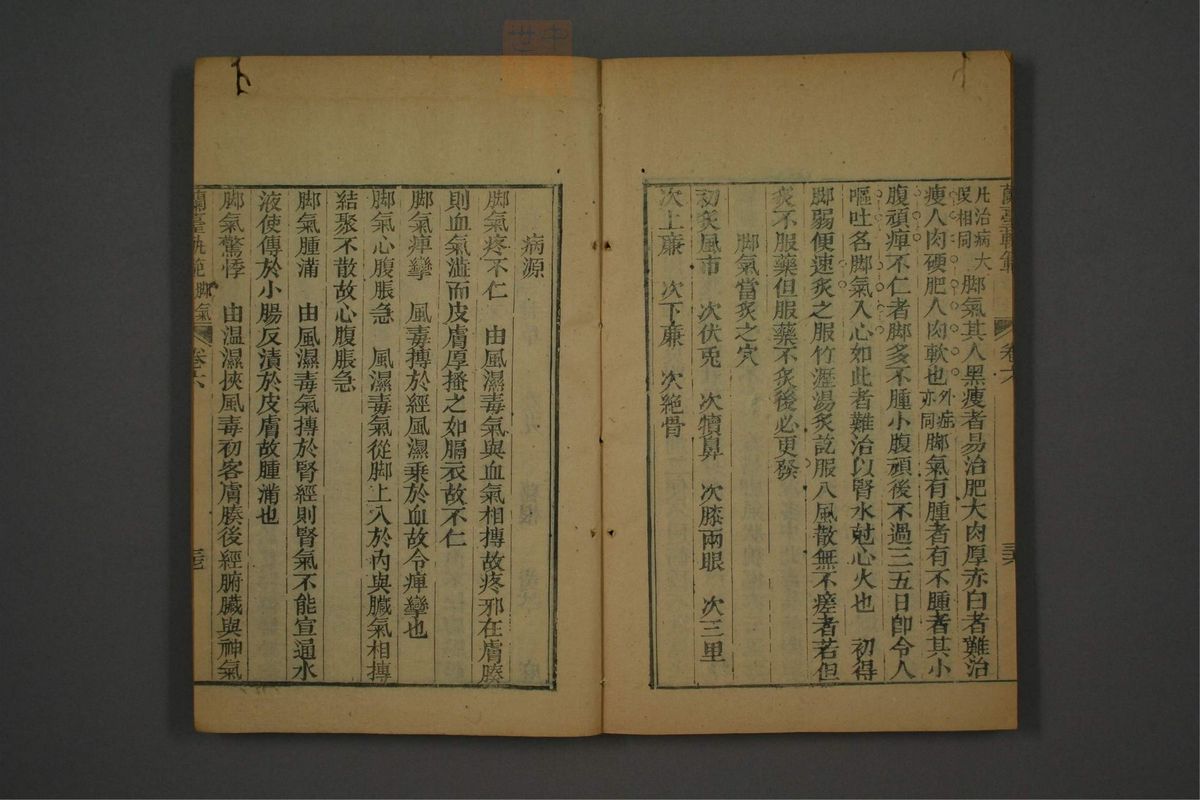 蘭臺軌範 卷六 三六
凡治病大叚相同 脚氣其人黑瘦者易治肥大肉厚赤白者難治
瘦人肉硬肥人肉軟也 外症亦同 脚氣有腫者有不腫者其小
腹頑痺不仁者脚多不腫小腹頑後不過三五日卽令人
嘔吐名脚氣入心如此者難治以腎水尅心火也 初得
脚弱便速炙之服竹瀝湯炙訖服八風散無不瘥者若但
炙不服藥但服藥不炙後必更發
脚氣當炙之穴
初炙風市 次伏兎 次犢鼻 次膝兩眼 次三里
次上廉 次下廉 次絶骨
病源
脚氣疼不仁 由風濕毒氣與血氣相摶故疼邪在膚腠
則血氣澁而皮膚厚搔之如膈衣故不仁
脚氣痺攣 風毒摶於經風濕乗於血故令痺攣也
脚氣心腹脹急 風濕毒氣從脚上入於內與臟氣相摶
結聚不散故心腹脹急
脚氣腫滿 由風濕毒氣摶於腎經則腎氣不能宣通水
液使傳於小腸反漬於皮膚故腫滿也
脚氣驚悸 由温濕挾風毒初客膚腠後經腑臟與神氣
蘭臺軌範 脚氣 卷六 三七